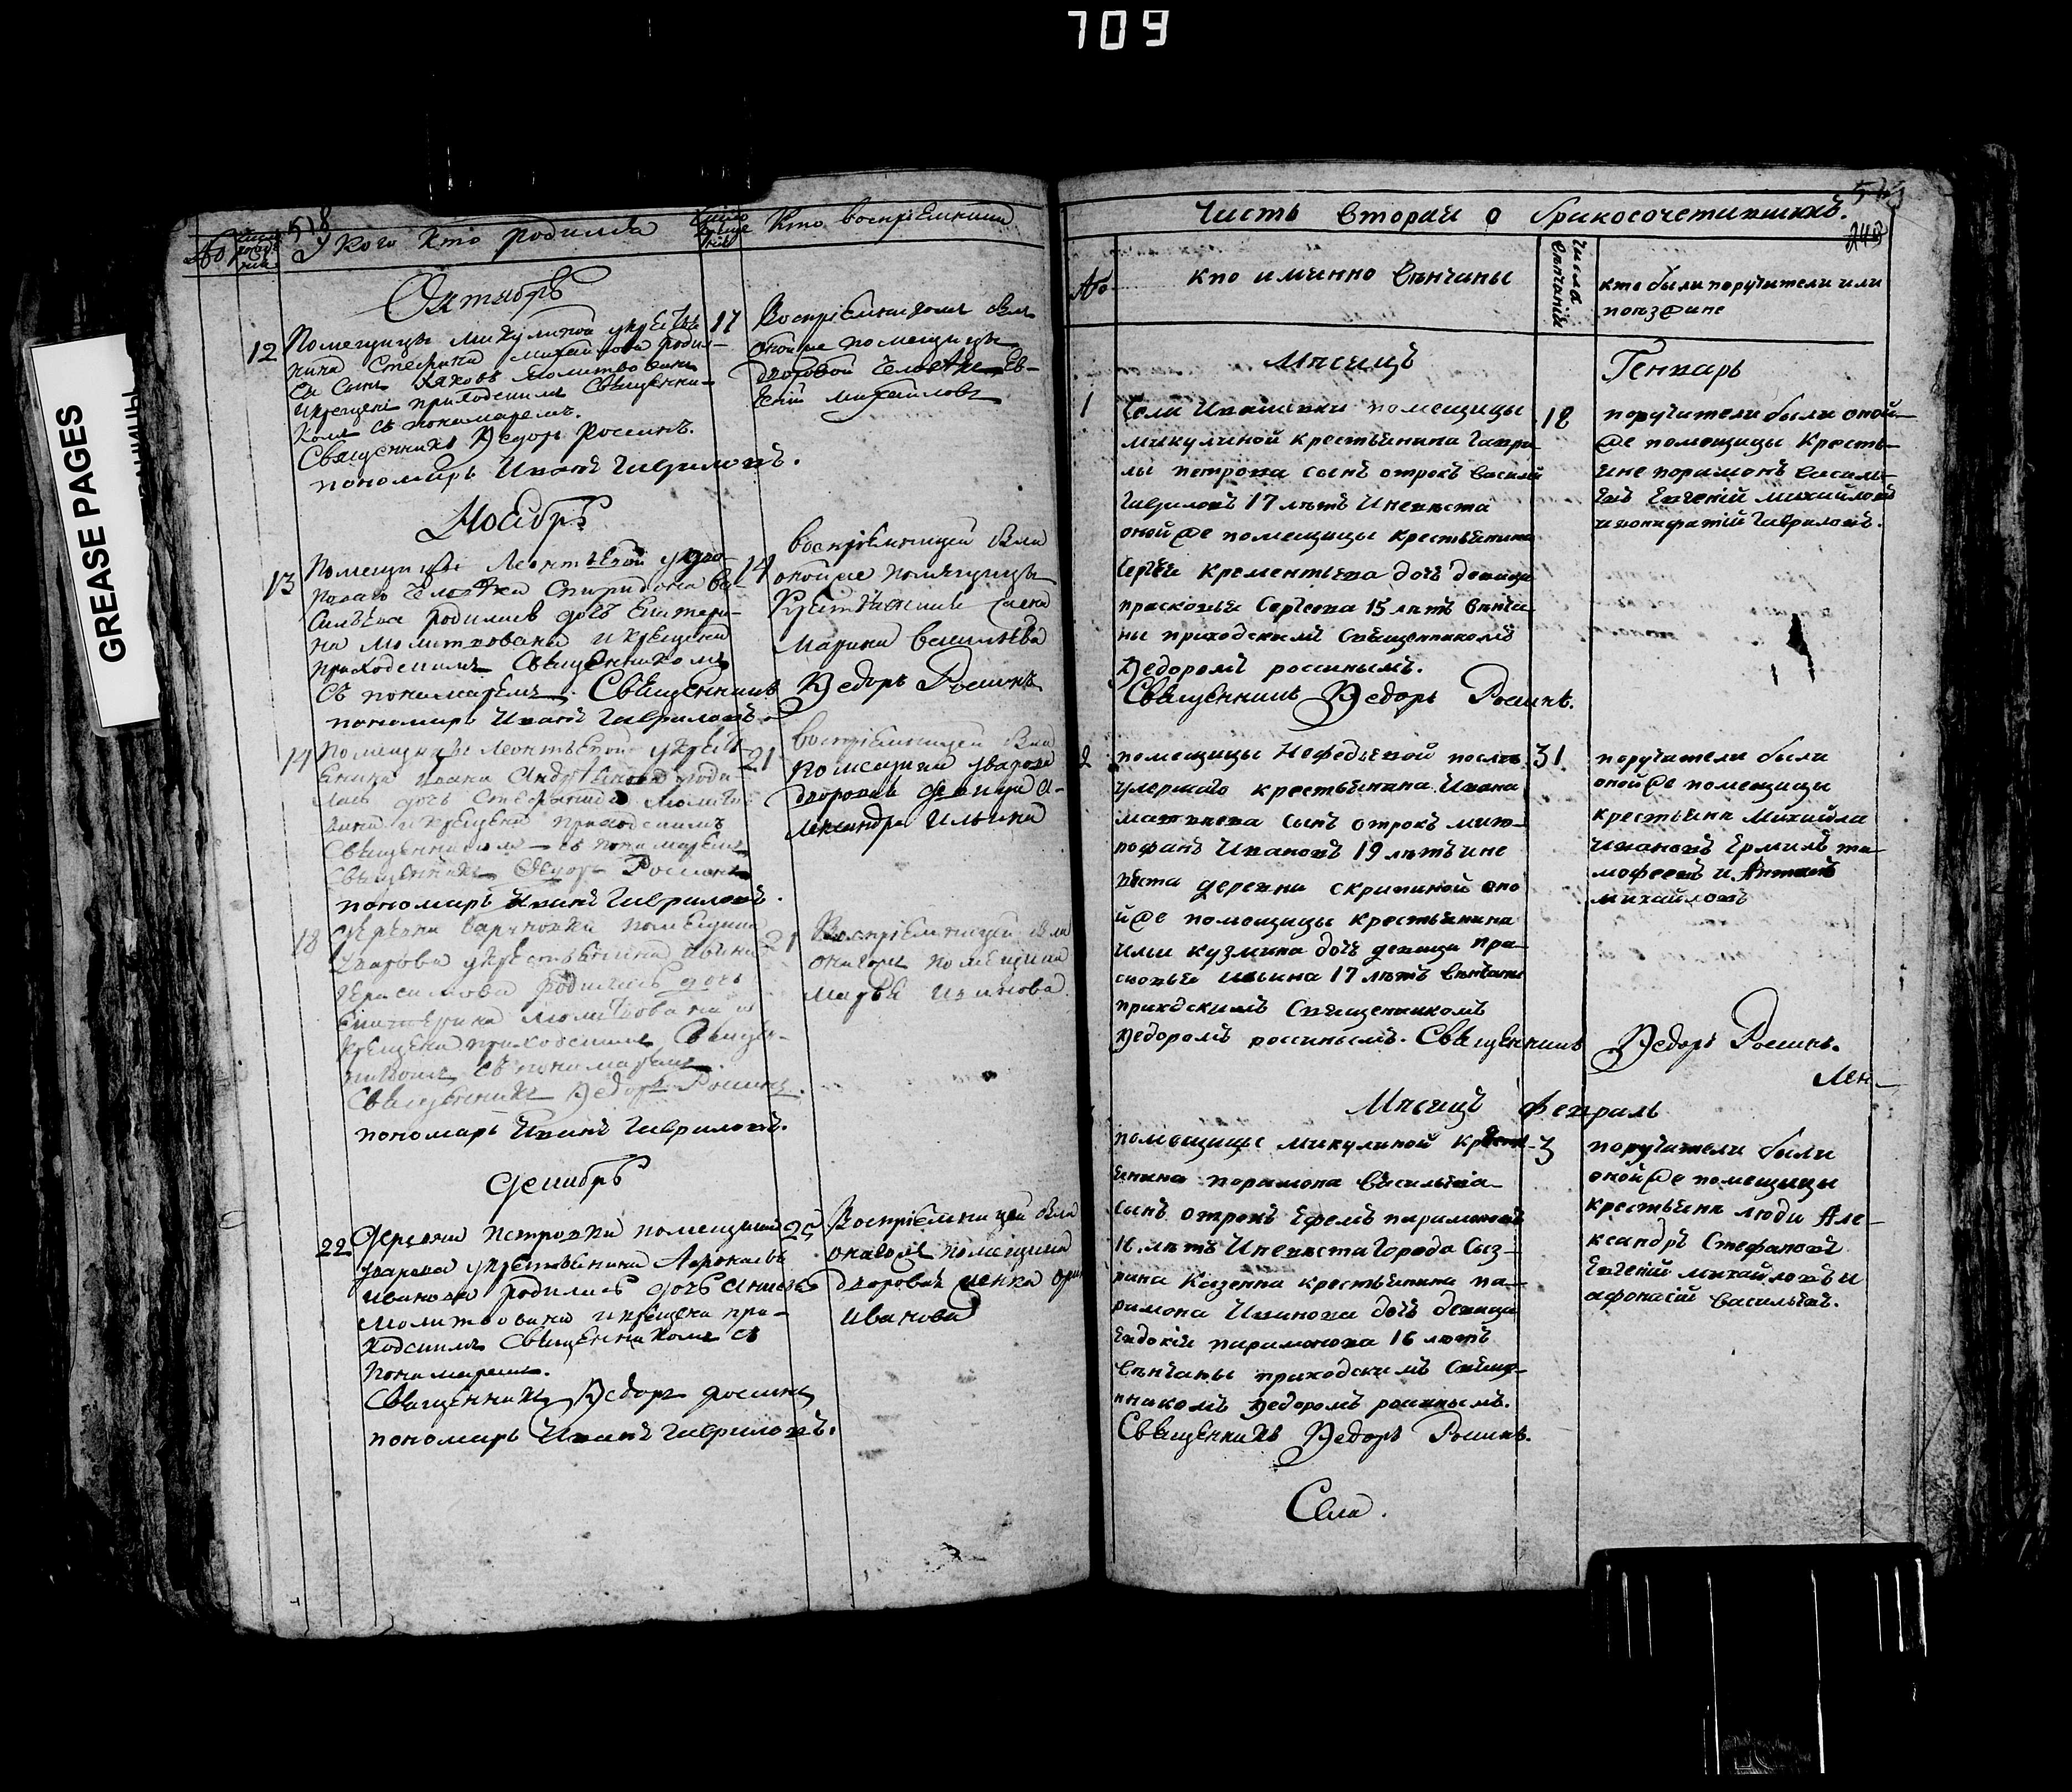 709
GREASE PAGES
518
У кого кто родился
Кто воспрiемники
Октябрь
12 Помещицы Микулиной у крестья
17
нина Стефана Михайлова родил-
ся сынъ Яковъ молитвованъ
и крещенъ приходскимъ священни-
комъ съ пономаремъ.
Священникъ Ѳедоръ Россинъ.
пономарь Иванъ Гавриловъ.
Воспрiемникомъ былъ
оной же помещицы
дворовой человекъ Ев-
генiй Михайловъ
Ноябрь
13 Помещицы Леонтьевой у дво-
14
роваго человека Спиридона Ва-
сильева родилась дочь Екатери-
на молитвована и крещена
приходскимъ священникомъ
съ пономаремъ. Священникъ Ѳедоръ Россинъ
пономарь Иванъ Гавриловъ.
воспрiемницей была
оной же помещицы
крестьянина
Марина Васильева
14 помещицы Леонтьевой у крестья
21
янина Ивана роди-
лась дочь
вана и крещена приходскимъ
священникомъ съ пономаремъ
Священникъ Ѳедоръ Россинъ
пономарь Иванъ Гавриловъ.
воспрiемницей была
помещика Уварова
дворовая девица А-
лександра Ильина
18 деревни помещика
21
Уварова у крестьянина Ивана
Герасимова родилась дочь
Екатерина молитвована и
крещена приходскимъ священ-
никомъ съ пономаремъ.
Священникъ Ѳедоръ Россинъ.
пономарь Иванъ Гавриловъ.
Воспрiемницей была
онагожъ помещика
Марья Иванова
Декабрь
22 Деревни Петровки помещика
25
Уварова у крестьянина
Иванова родилась дочь Анисья
молитвована и крещена при-
ходскимъ священникомъ съ
пономаремъ.
Священникъ Ѳедоръ Россинъ
пономарь Иванъ Гавриловъ.
Воспрiемницей была
онагожъ помещика
дворовая
Иванова
Часть вторая о бракосочетавшихъ.
№
кто именно венчаны
числа венчанiй
кто были поручители или
поезжане
Месяцъ Генварь
1 Села Ивашевки помещицы
18
микулиной крестьянина Гаври
лы петрова сынъ отрокъ василий
Гавриловъ 17 летъ и невеста
оной же помещицы крестьянина
Сергея Клементьева дочь девица
прасковья Сергеева 15 летъ венча
ны приходскимъ Священникомъ
Ѳедоромъ россинымъ.
Священникъ Ѳедоръ Россинъ.
поручители были оной
же помещицы Кресть-
яне парамонъ василь-
евъ Евгенiй михайловъ
и вонифатiй Гавриловъ.
2 помещицы Нефедьевой после
31
умершаго крестьянина Ивана
матвеева сынъ отрокъ мит-
рофанъ Ивановъ 19 летъ и не
веста деревни скрипиной оно
й же помещицы крестьянина
ильи кузмина дочь девица пра-
сковья ильина 17 летъ венчаны
приходскимъ Священникомъ
Ѳедоромъ россинымъ. Священникъ Ѳедоръ Россинъ.
поручители были
оной же помещицы
крестьяне Михайла
Ивановъ Ермилъ ти-
мофеевъ и Антонъ
михайловъ
Месяцъ Февраль
помещицы микулиной крест
3
янина парамона Васильева
сынъ отрокъ Ефемъ парамоновъ
16 летъ и невеста Города Сыз-
рана Казенна крестьянина па-
рамона Иванова дочь девица
Евдокiя парамонова 16 летъ
венчаны приходскимъ Свяще-
нникомъ Ѳедоромъ россинымъ.
Священникъ Ѳедоръ Россинъ.
поручители были
оной же помещицы
крестьяне люди Але-
ксандръ Стефановъ
Евгенiй михайловъ и
афонасiй васильевъ.
Села.